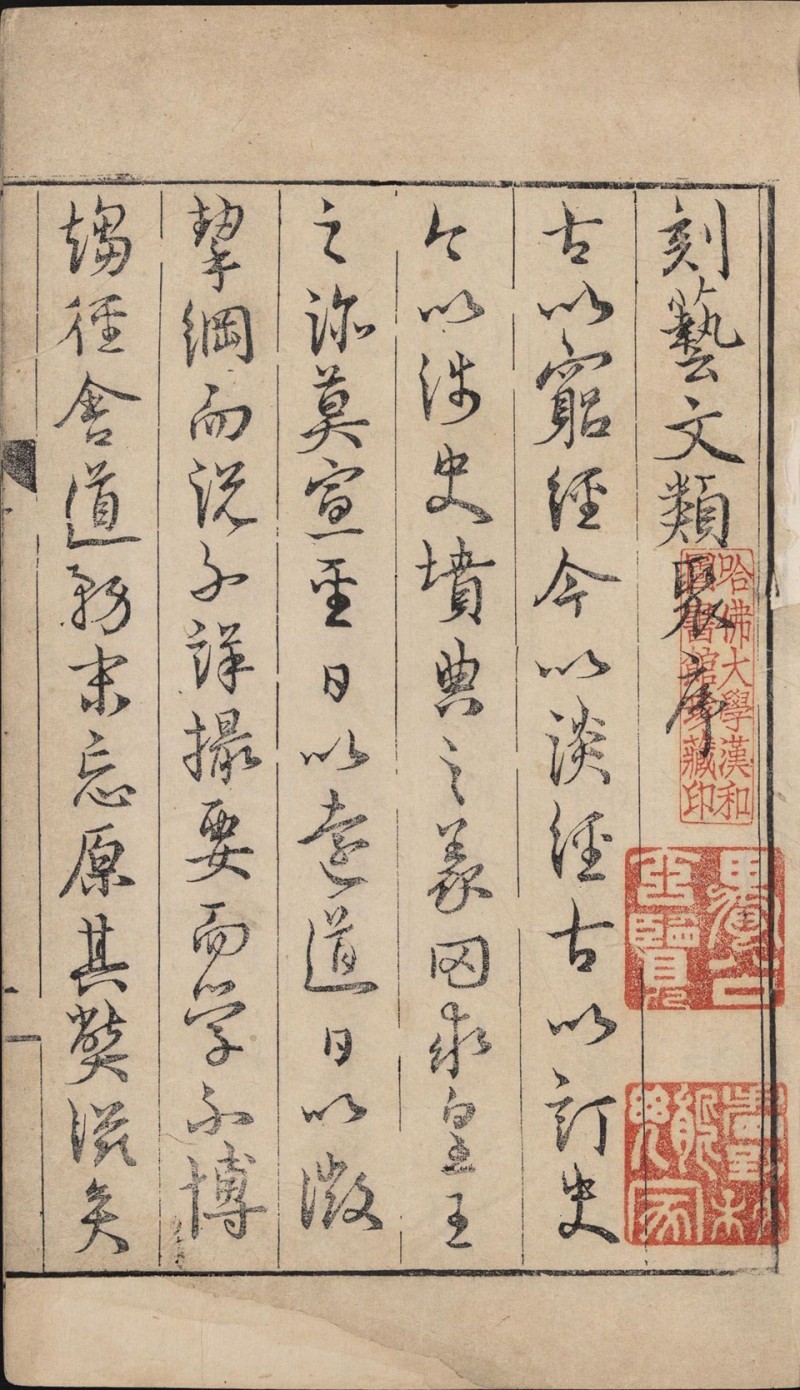 刻藝文類聚序
古以窮經今以談經古以訂史
今以涉史墳典之義罔求皇王
之跡莫宣聖日以遠道日以微
挈綱而説不詳撮要而学不博
趨徑舍道務末忘原其獘滋矣
哈佛大學漢和
圖書館珍藏印